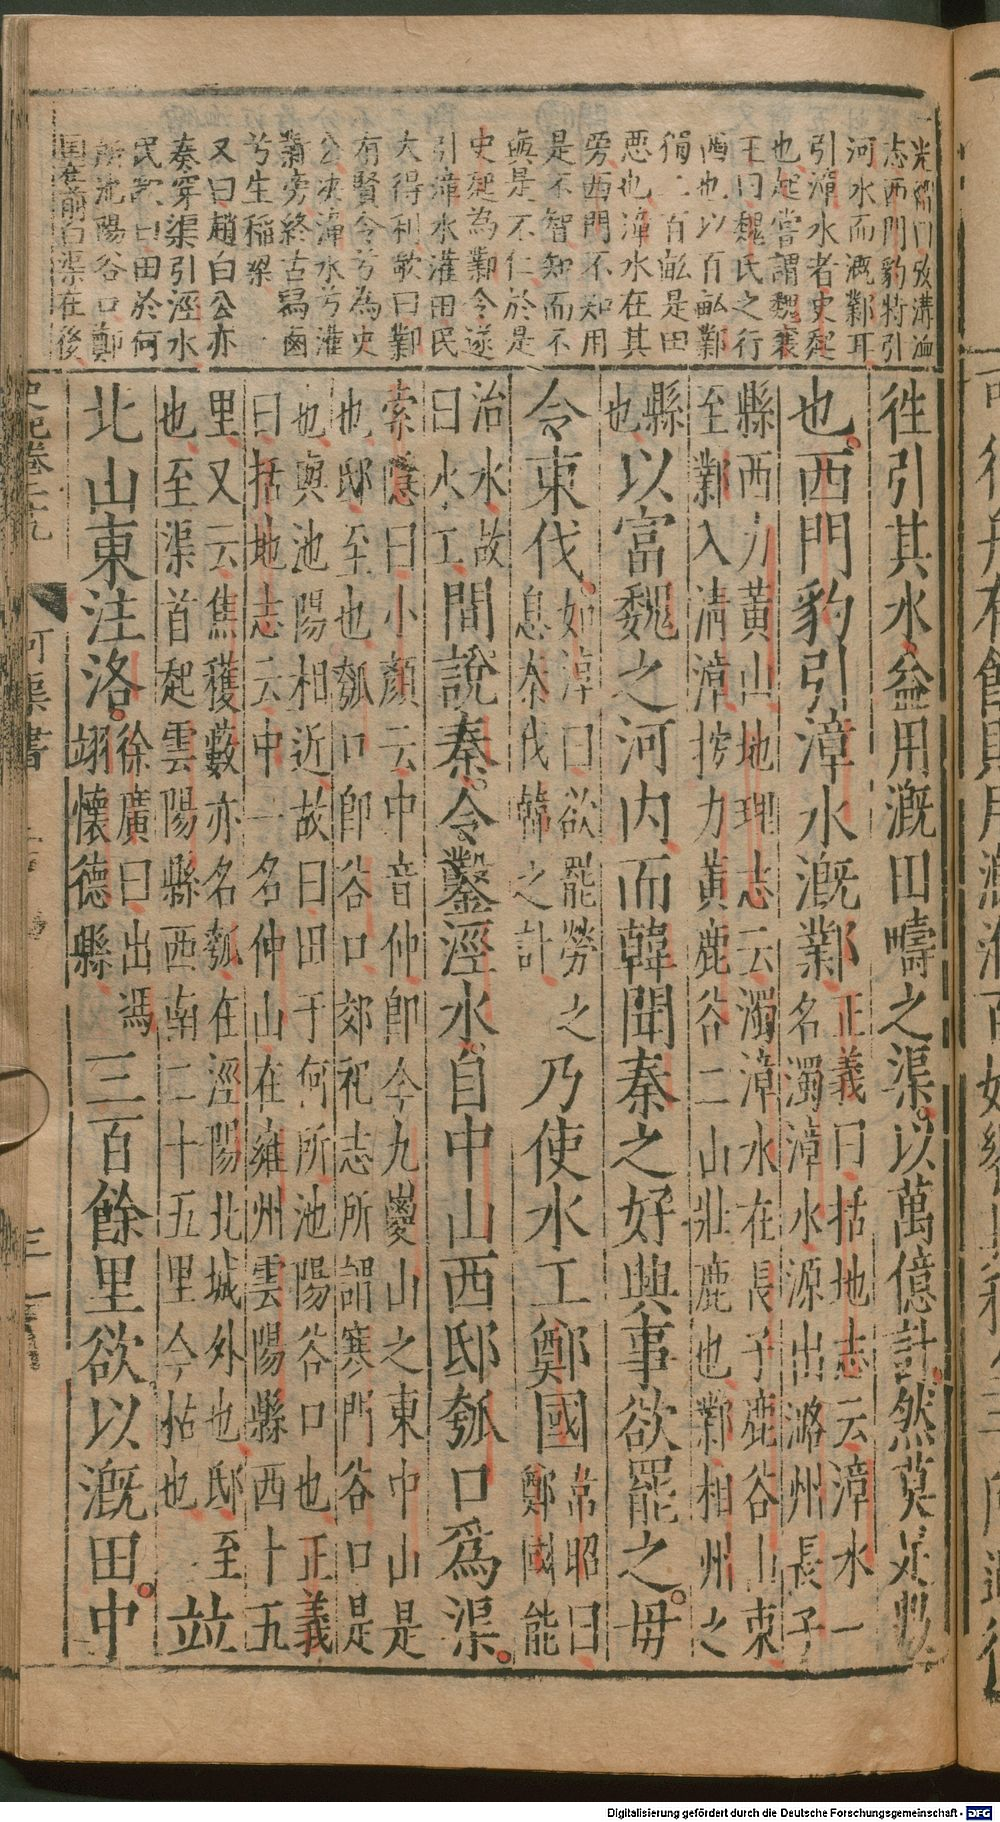 溝洫
志西門豹特引
河水而溉鄴耳
引漳水者史起
也起嘗謂魏襄
王曰魏氏之行
酉也以百畝鄴
獨二百畝是田
惡也漳水在其
旁西門不知用
是不智知而不
與是不仁於是
史起為鄴令遂
引漳水灌田民
大得利歌曰鄴
有賢令兮為史
公決漳水兮灌
鄴旁終古舄鹵
兮生稻粱
又曰趙白公亦
奏穿渠引涇水
民歌曰田於何
所池陽谷口鄭
國在前白渠在後
徃引其水益用溉田疇之渠。以萬億計。然莫足數
也。西門豹引漳水溉鄴
正義曰括地志云漳水一
名濁漳水源出潞州長子
縣西力黃山地理志云濁漳水在長子鹿谷山東
至鄴入淸漳按力黃鹿谷二山壯鹿也鄴相州之
縣
也
以富魏之河内而韓聞秦之好興事欲罷之。毋
令東伐
如淳曰欲罷勞之
息秦伐韓之計
乃使水工鄭國
韋昭曰
鄭國能
治水故
曰水工
間說秦。令鑿涇水。自中山西邸瓠口為渠。
索隱曰小顏云中音仲即今九嵕山之東中山是
也邸至也瓠口即谷口郊祀志所謂寒門谷口是
也與池陽相近故曰田于何所池陽谷口也正義
曰括地志云中一名仲山在雍州雲陽縣西十五
里又云焦穫藪亦名瓠在涇陽北城外也邸至
也至渠首起雲陽縣西南二十五里今枯也
竝
北山東注洛。
徐廣曰出馮
翊懷德縣
三百餘里欲以溉田。中
史記卷二十九
河渠書
三
Digitalisierung gefördert durch die Deutsche Forschungsgemeinschaft - DFG